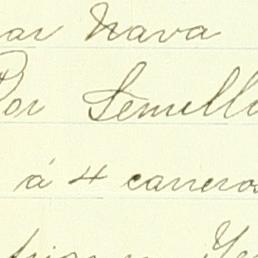 ar Nava
Por Semill
á 4 carreros